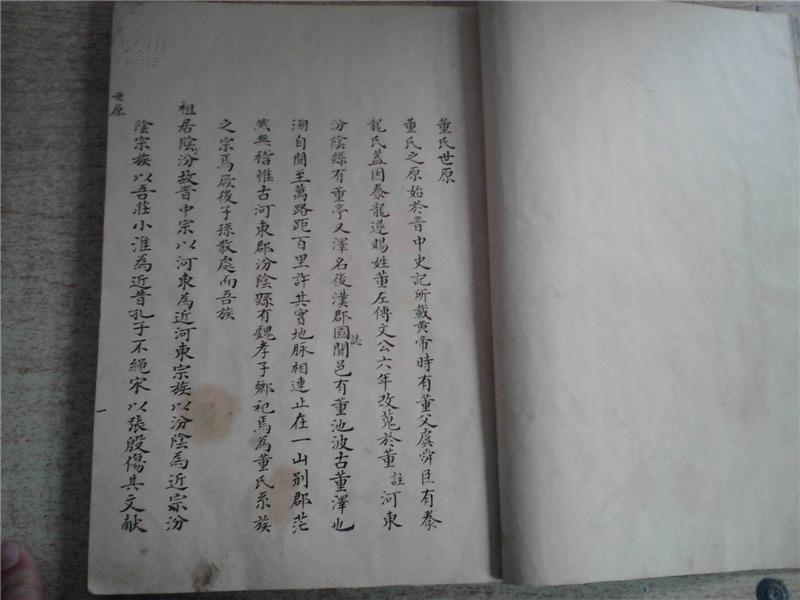 董氏世原
董氏之原始於晋中史記所載黄帝時有董父虞舜臣有豢
龍氏盖因豢龍遂賜姓董左傳文公六年改蒐於董註河東
汾陰縣有董亭人澤名後漢郡国誌聞邑有董池波古董澤也
湖自聞至萬路距百里許其實地脉相連止在一山别郡茫
然無稽惟古河東郡汾陰縣有魏孝子鄉祀焉為董氏系族
之宗焉厥後子孫散處而吾族
祖居陰汾故晋中宗以河東為近河東宗族以汾陰為近宗汾
陰宗族以吾莊小淮為近昔孔子不绳宋以張殷傷其文献
世原
一